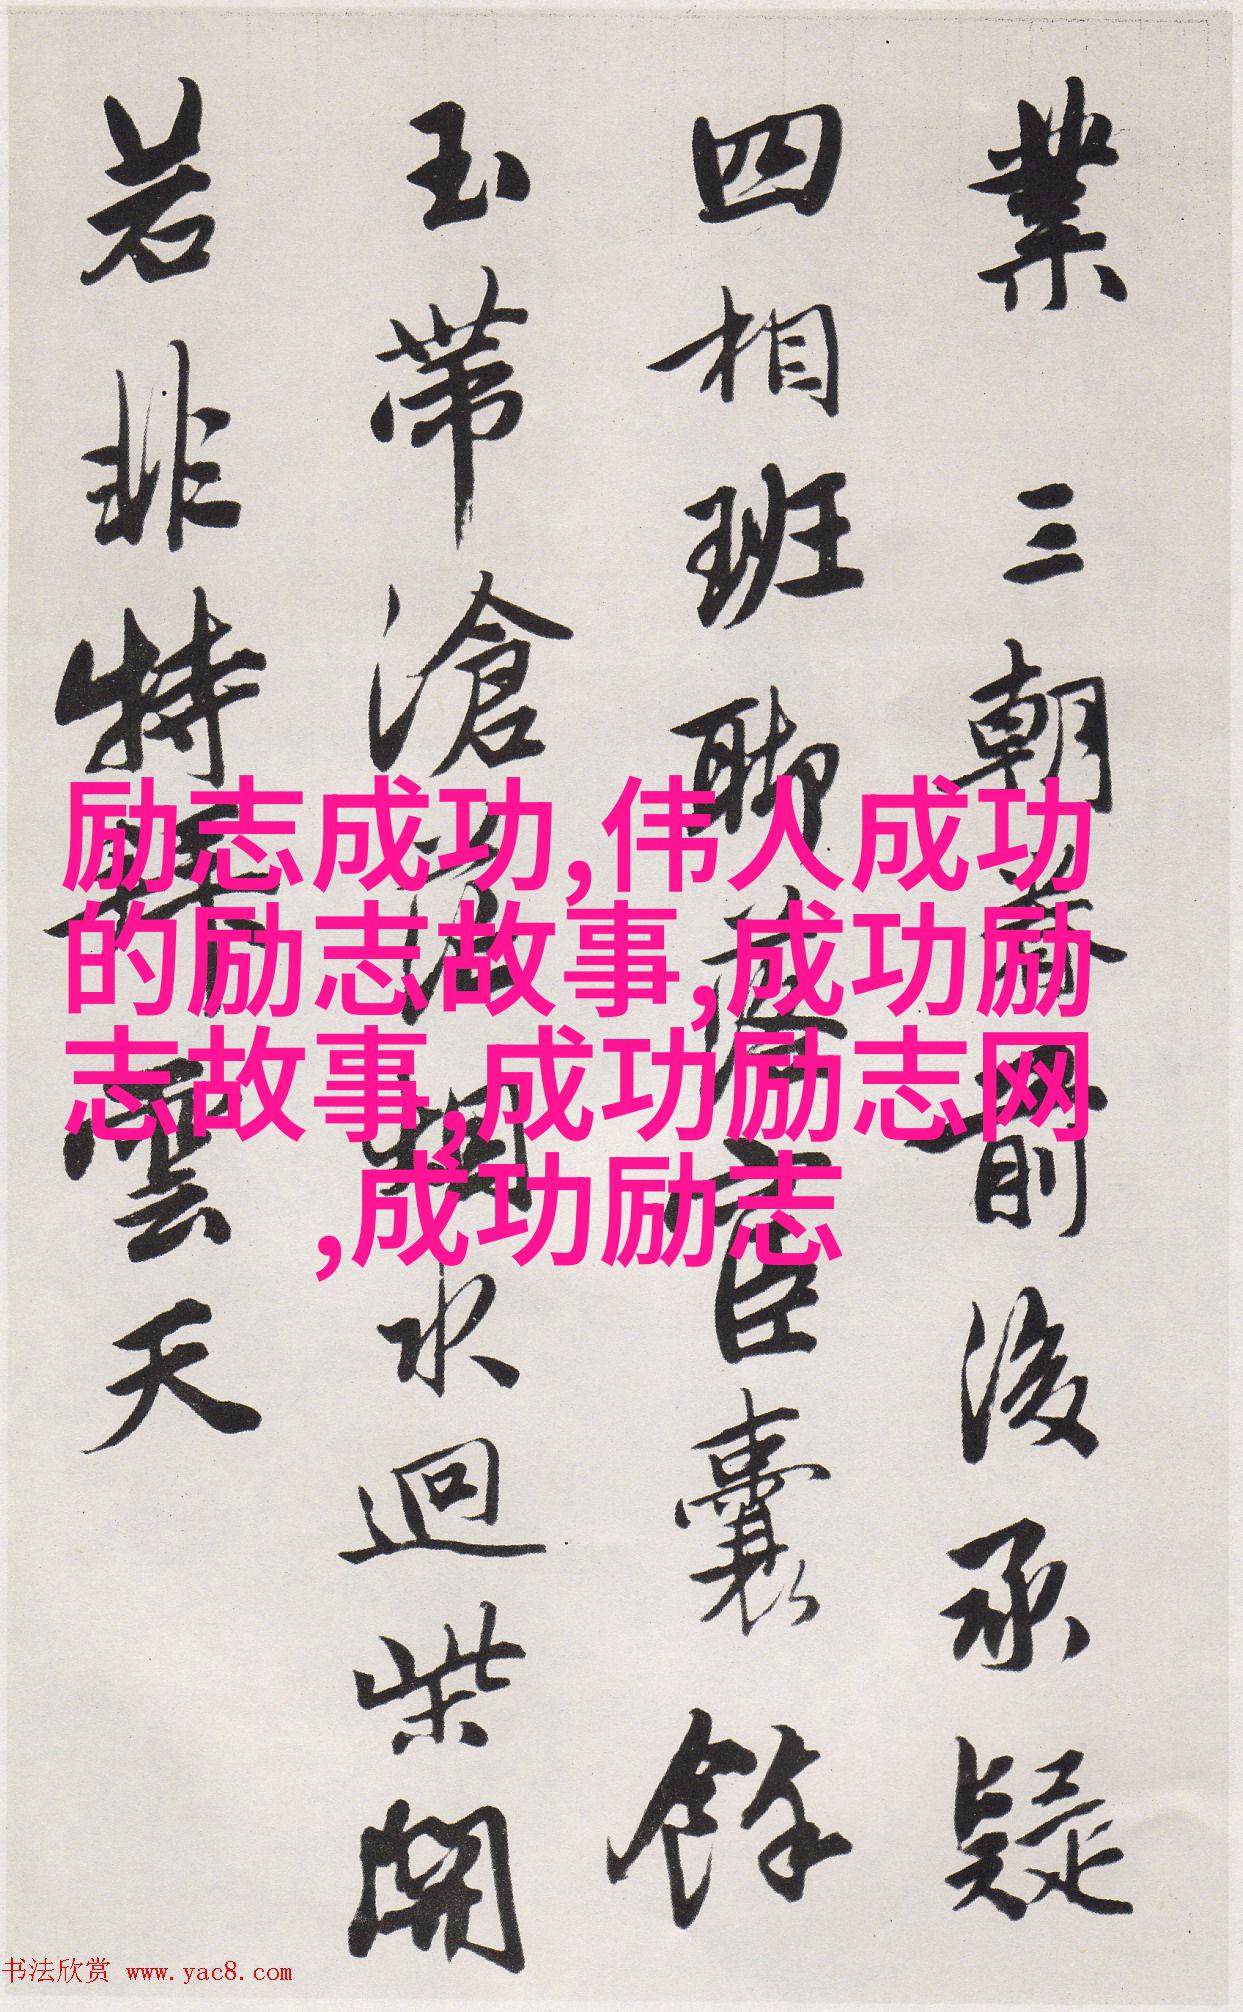 業 三朝着前後承疑
四相班聯
臣囊餘
玉帶滄
水迴柴開
若非特
雲天
励志成功,伟人成功
的励志故事,成功励
志故事,成功励志网
,成功励志
书法欣赏 www.yac8.com